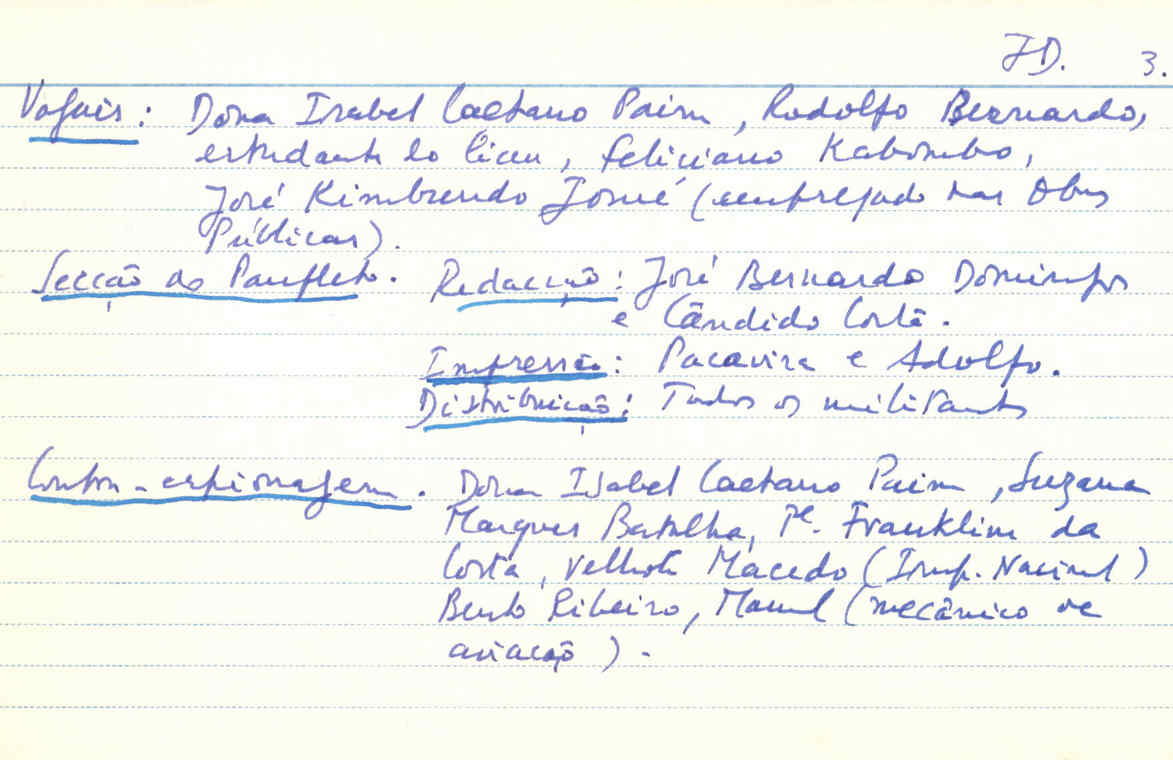 JD. 3.
Vogais: Dona Isabel Caetano Paim, Rodolfo Bernardo,
estudante do liceu, Feliciano Kabombo,
José Kimbundo Josué (empregado nas Obras
Públicas).
Secção do Panfleto. Redacção: José Bernardo Domingos
e Cândido Costa.
Impressão: Pacavira e Adolfo.
Distribuição: Todos os militantes
Contra-espionagem. Dona Isabel Caetano Paim, Suzana
Marques Batalha, Pe. Franklim da
Costa, Velhote Macedo (Imp. Nacional)
Bento Ribeiro, Manuel (mecânico de
aviação).